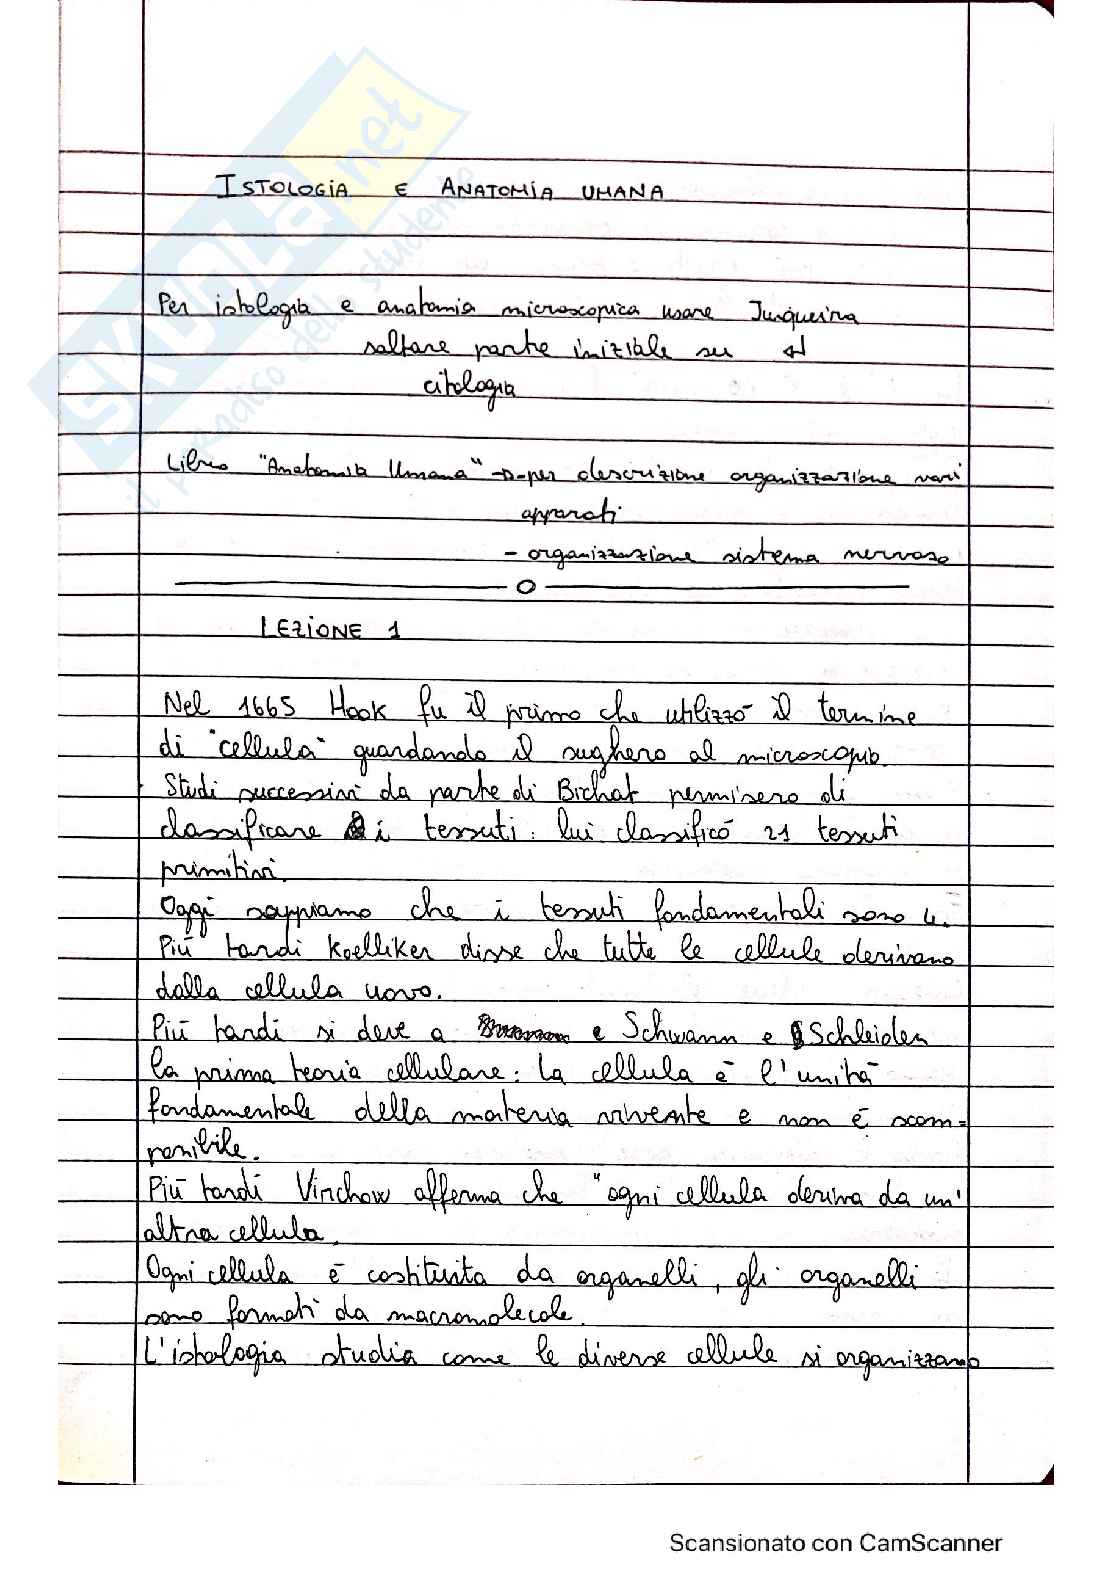 ISTOLOGIA E ANATOMIA UMANA
Per istologia e anatomia microscopica usare Junqueira
saltare parte iniziale su ↵
citologia
Libro "Anatomia Umana" → per descrizione organizzazione vari
apparati
- organizzazione sistema nervoso
LEZIONE 1
Nel 1665 Hook fu il primo che utilizzò il termine
di "cellula" guardando il sughero al microscopio.
Studi successivi da parte di Bichat permisero di
classificare i tessuti: lui classificó 21 tessuti
primitivi.
Oggi sappiamo che i tessuti fondamentali sono 4.
Più tardi Koelliker disse che tutte le cellule derivano
dalla cellula uovo.
Più tardi si deve a e Schwann e Schleiden
la prima teoria cellulare: la cellula è l'unità
fondamentale della materia vivente e non è scom=
ponibile.
Più tardi Virchow afferma che "ogni cellula deriva da un'
altra cellula.
Ogni cellula è costituita da organelli, gli organelli
sono formati da macromolecole.
L'istologia studia come le diverse cellule si organizzano
SKUOLA.net
il paradiso dello studente
Scansionato con CamScanner